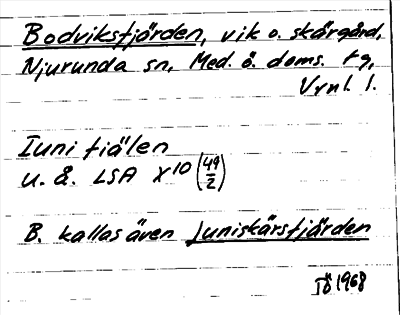 Bodviksfjärden, vik o. skärgård,
Njurunda sn, Med. ö. doms. tg,
Vrnl. l.
Iuni fiälen
u. å. LSA X10 (49/2)
B. kallas även Juniskärsfjärden
IÖ 1968